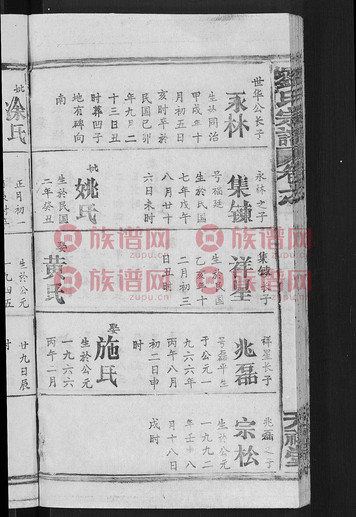 世华公长子
永林
生于同治
甲戌年十
月初五日
亥时卒於
民国己卯
年九月二
十三日丑
时葬凹子
地有碑向
南
妣
涂氏
正月初一
永林之子
集鍾
号福廷
生於民国
七年戊午
八月廿十
六日未时
妣
姚氏
生於民国
二年癸丑
集鍾长子
祥星
生於民国
乙亥年十
二月初三
日丑时
娶
黄氏
生於公元
一九四五
祥星长子
兆磊
号磊平生
于公元一
九六六年
丙午八月
初二日申
时
娶
施氏
生於公元
一九六六
丙午年二月
廿九日辰
时
兆磊之子
宗松
生於公元
一九九二
年壬申八
月十八日
戌时
族谱网
www.zupu.cn